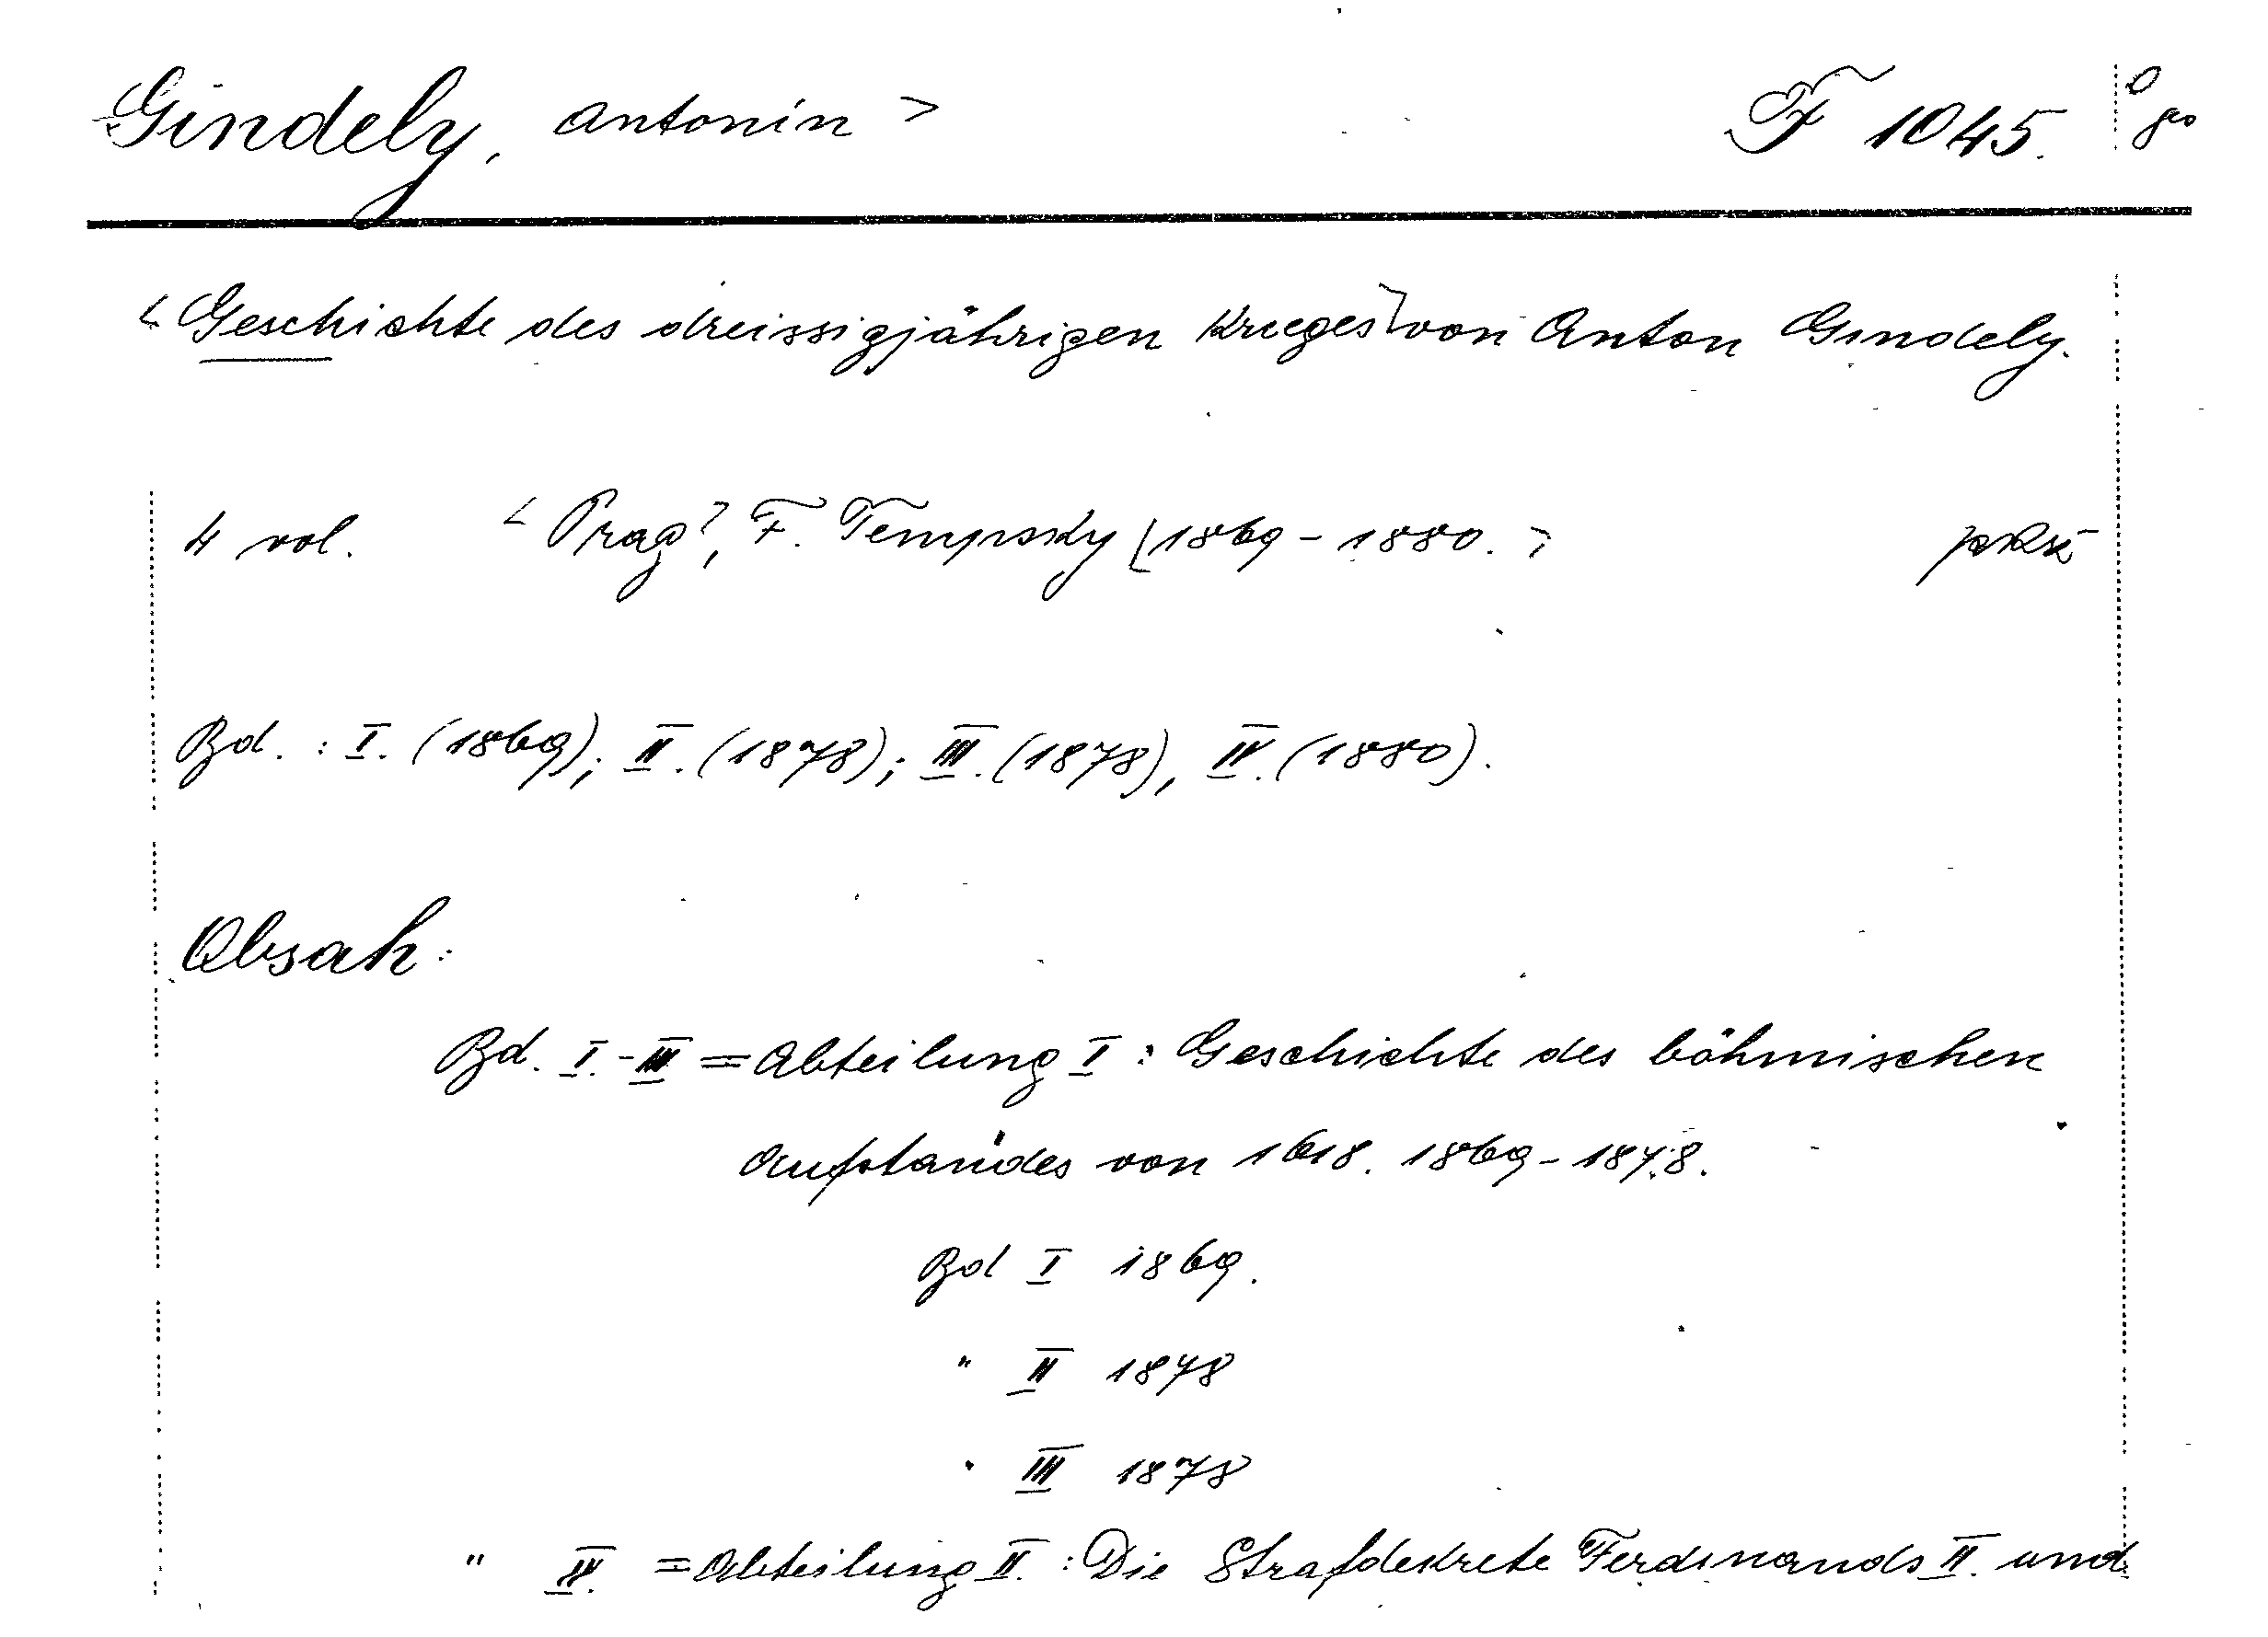 Gindely, Antonín > F 1045.
< Geschichte des dreissigjährigen Krieges> von Anton Gindely.
4 vol. < Prag>, F. Tempsky [1869-1880. >
Bd. : I. (1869); II. (1878); III. (1878), IV. (1880).
Obsah:
Bd. I.-III = Abteilung I : Geschichte des böhmischen
Aufstandes von 1618. 1869-1878.
Bd I 1869.
" II 1878
" III 1878
" IV. = Abteilung II. : Die Strafdekrete Ferdinands II. und